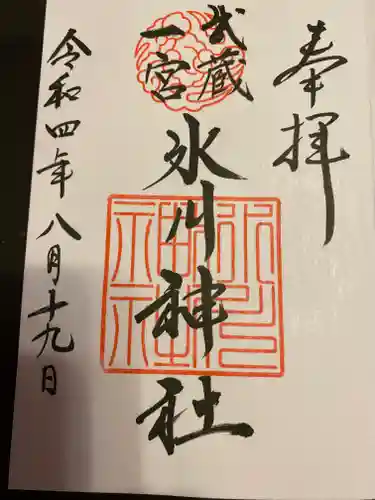 奉拝
武蔵
一宮
氷川神社
令和四年八月十九日
氷川
神社